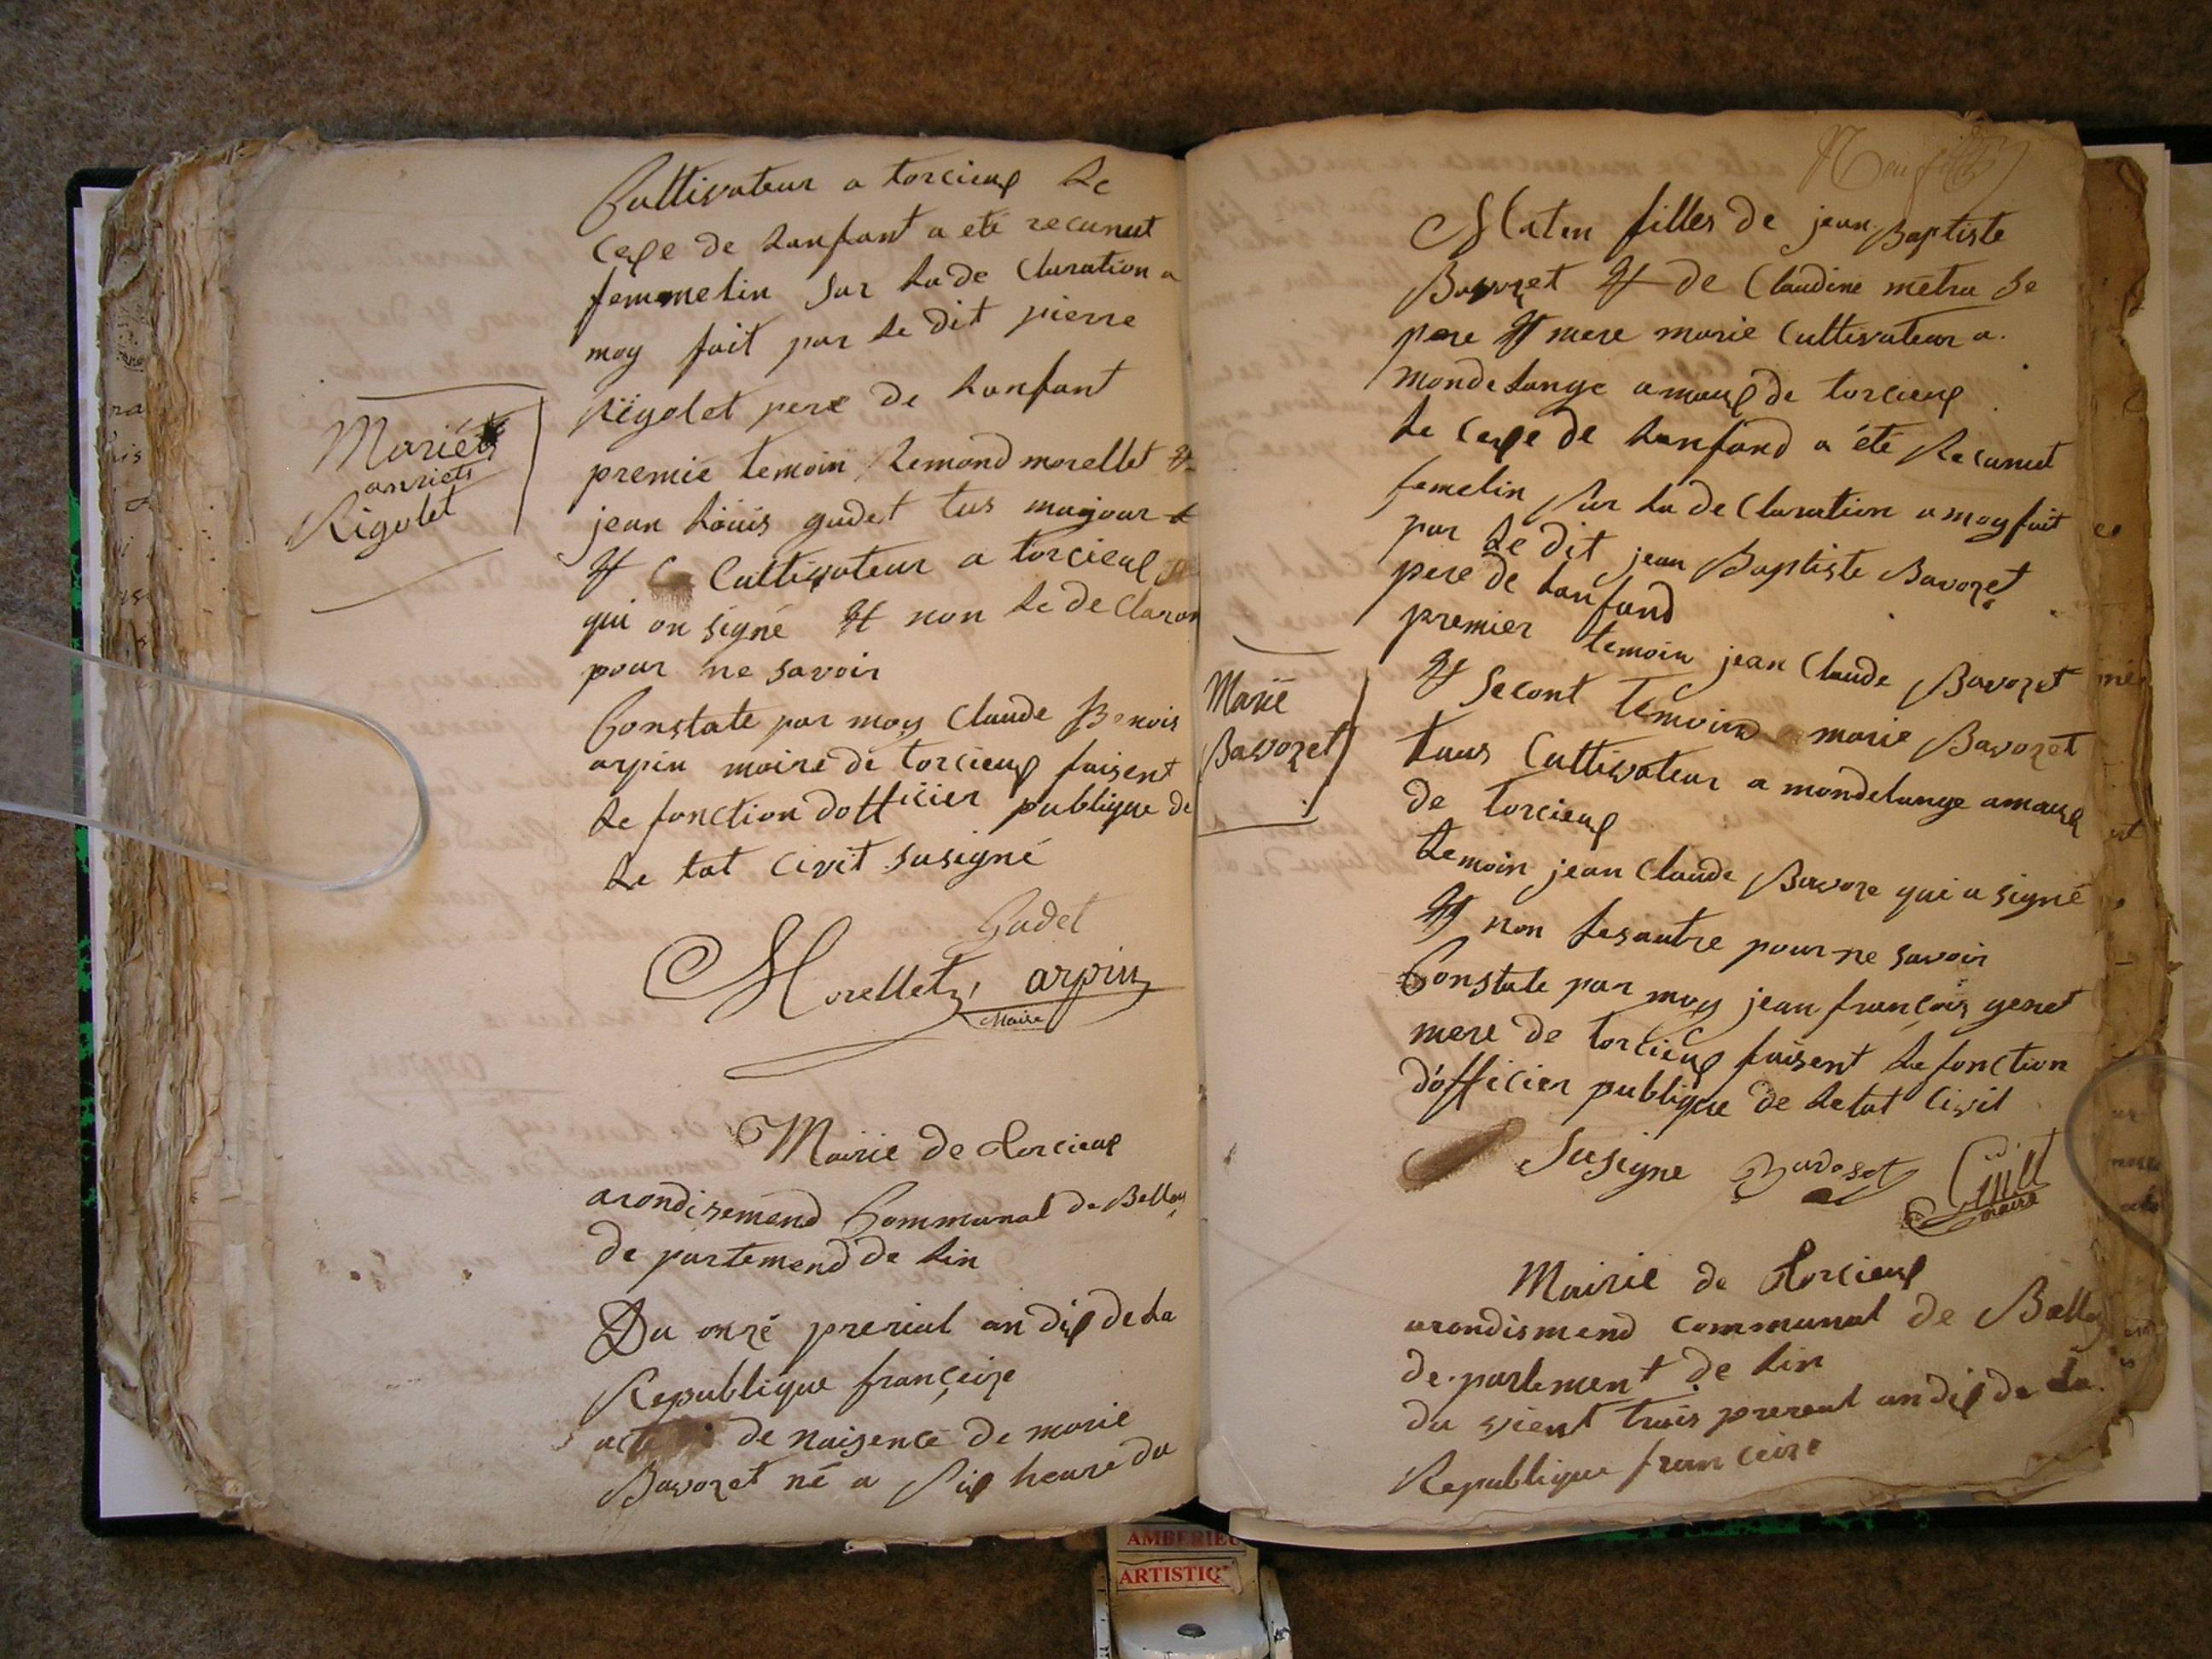 Cultivateur a torcieux Le
Cexe de Lanfant a eté recunut
femmelin sur La de Claration a
moy fait par Le dit pierre
Rigolet pere de Lanfant
premie temoin Remond morellet &
jean Louis gudet tus majour
Et Cultivateur a torcieux
qui on signé Et non Le de Claron
pour ne savoir
Constate par moy Claude Benois
arpin maire de torcieux faisent
Le fonction dofficier publique de
Le tat Civit susigné
Mariéts
anriets
Rigolet
Gudet
Morellet arpin
Maire
Mairie de Torcieux
arondisemend Communal de Belley
de partemend de Lin
Du onzé prerial an dix de La
Republique françeize
acte de naisence de marie
Bavozet né a Six heure du
Maten filles de jean Baptiste
Bavozet Et de Claudine metra Se
pere Et mere marie Cultivateur a
monde Lange amaux de torcieux
Le Cexe de Lanfand a été Recunut
femelin Sur La de Claration a moy fait
par Le dit jean Baptiste Bavozet
pere de Lanfand
premier temoin jean Claude Bavozet
Et Secont temoin marie Bavozet
tous Cultivateur a mondelange amaux
de torcieux
Temoin jean Claude Bavoze qui a signé
Et non Lesautre pour ne savoir
Constate par moy jean françois genet
mere de torcieux faisent Le fonction
d'officier publique de Letat Civil
Susigne Bavoset
maire
Marie
Bavozet
Mairie de Torcieux
arondismend communal de Belley
de partement de Lin
du vient trois prereal an dix de La
Republique franceize
AMBERIEU
ARTISTIQ